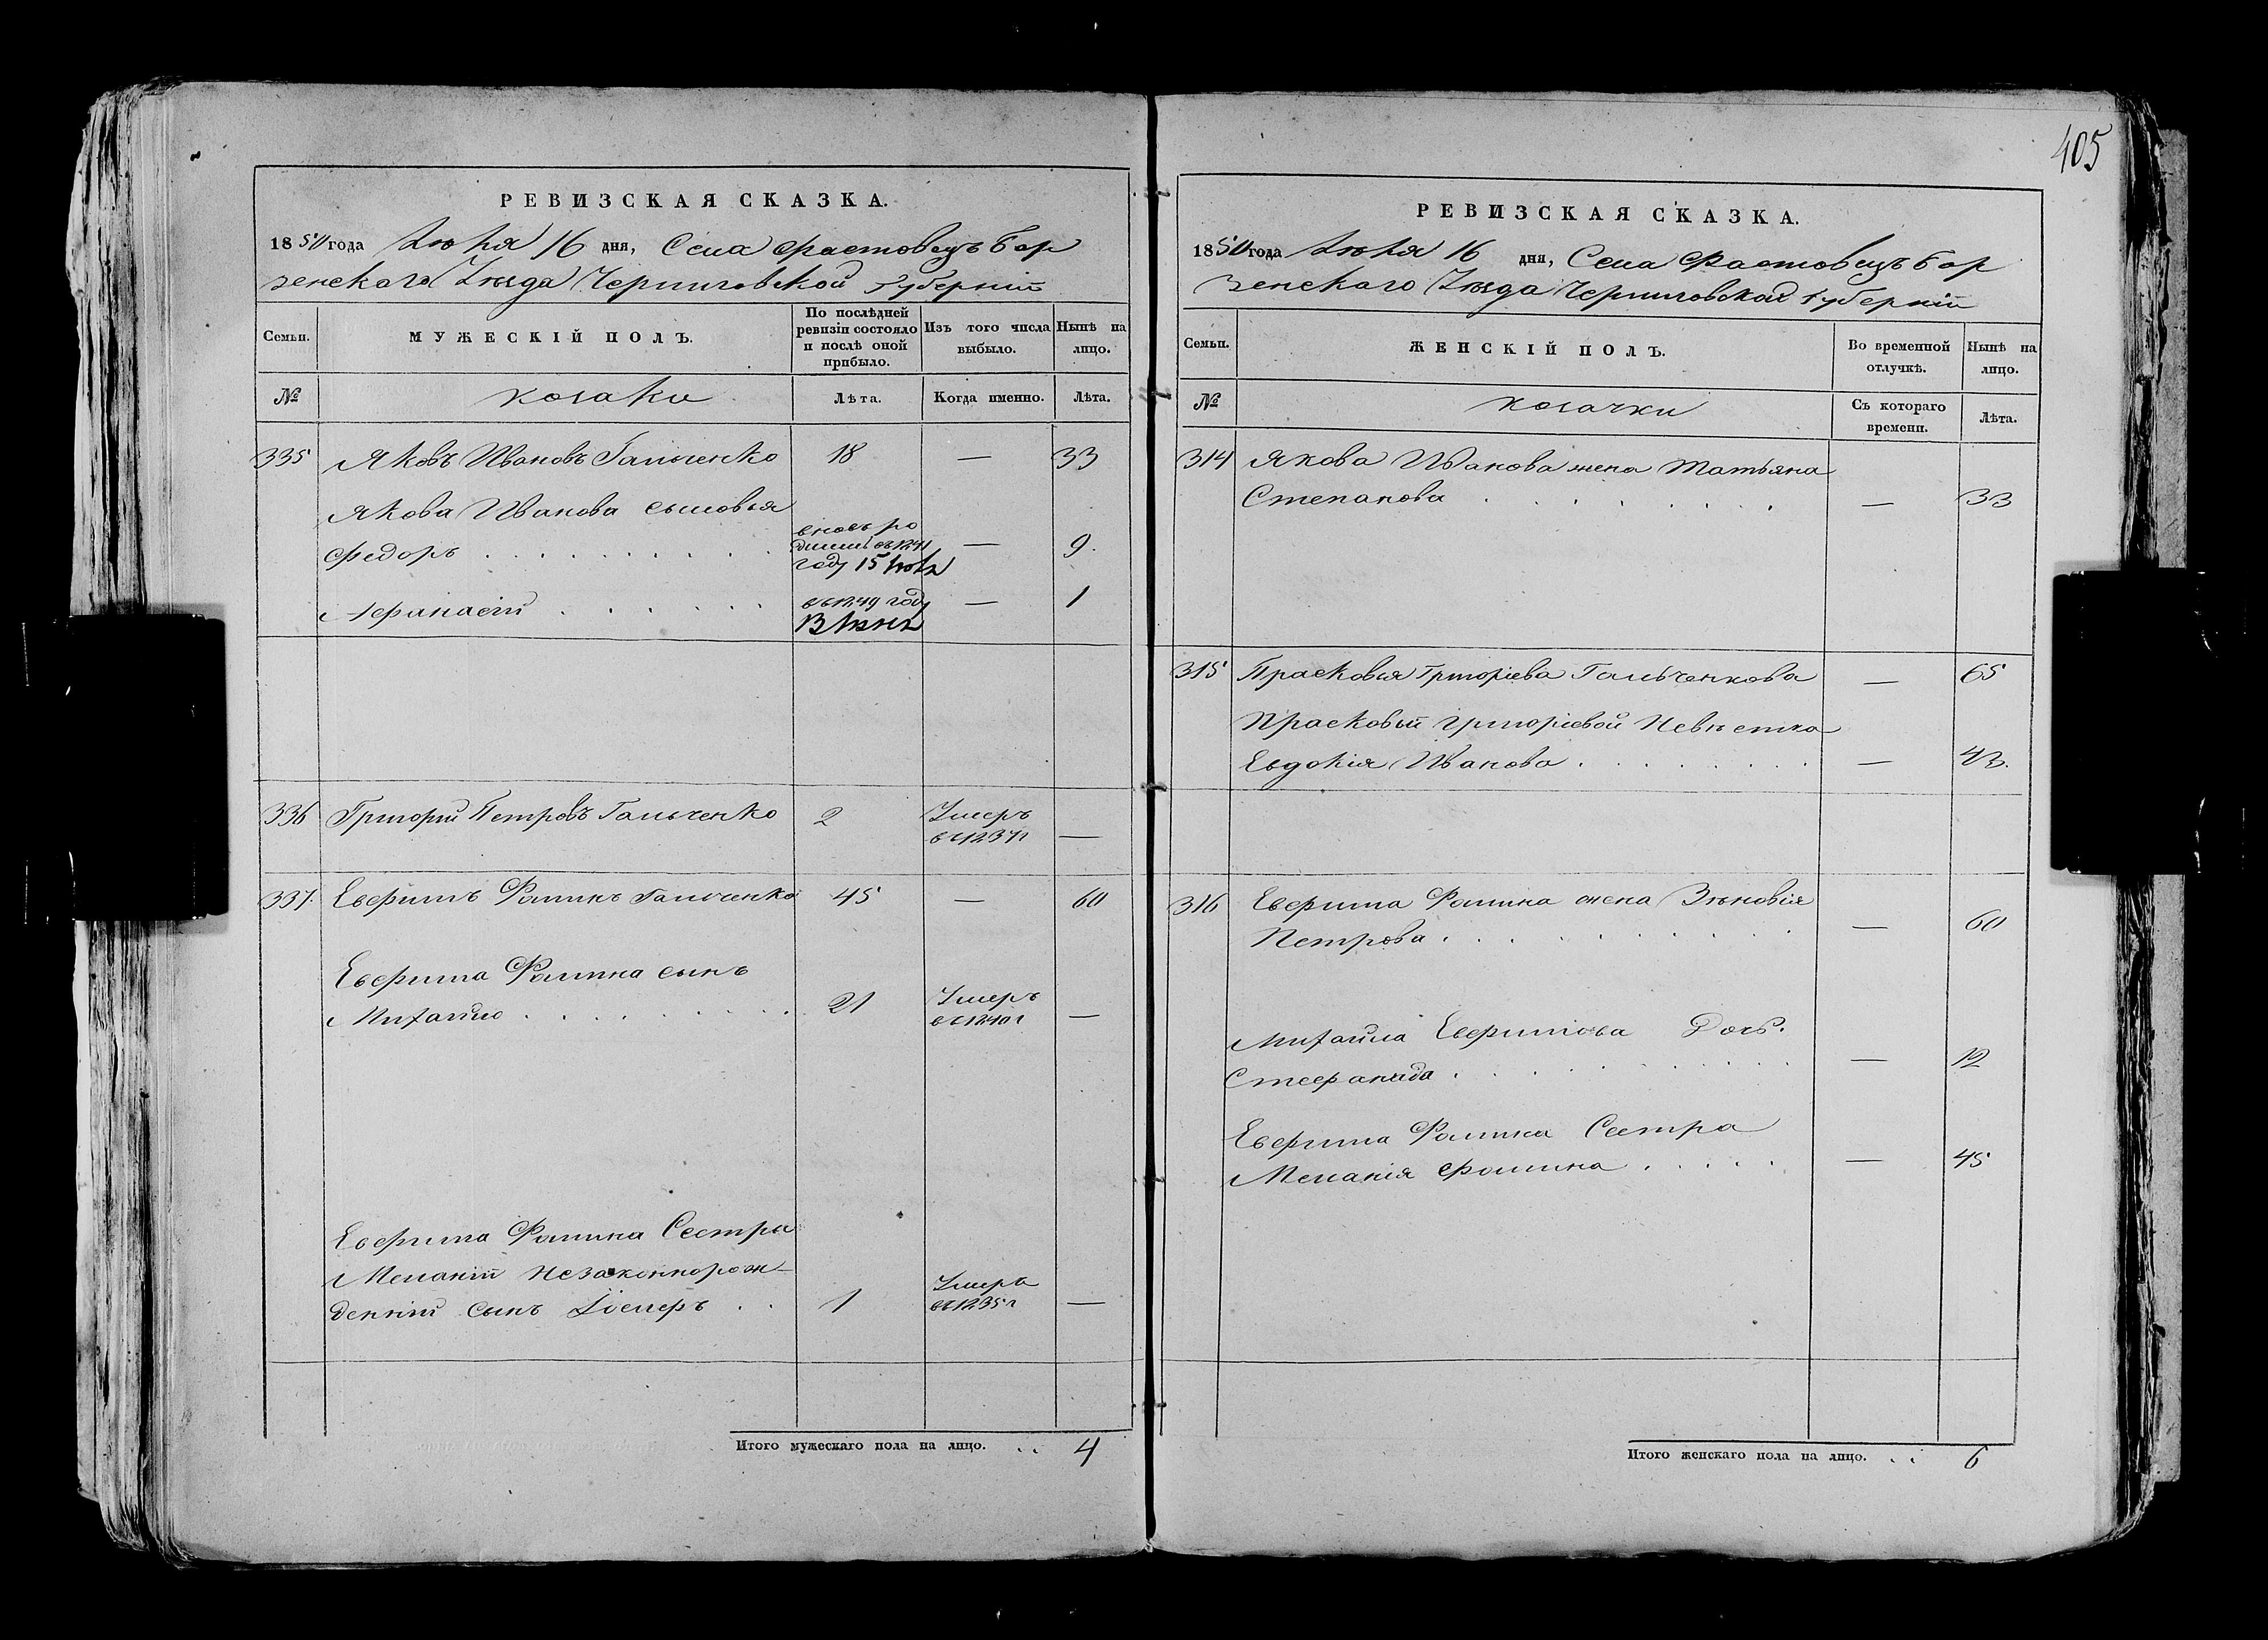 405
РЕВИЗСКАЯ СКАЗКА.
1850 года Июля 16 дня, Села Фастовецъ Бор
зенского Уѣзда Черниговской Губерніи
Семьи.
МУЖЕСКІЙ ПОЛЪ.
По послѣдней
ревизіи состояло
и послѣ оной
прибыло.
Изъ того числа
выбыло.
Нынѣ на
лицо.
№
козаки
Лѣта.
Когда именно.
Лѣта.
335 Яковъ Ивановъ Гальченко 18 — 33
Якова Иванова сыновья
Федоръ . . . . . . . . . вновь ро
дился въ 1841
году 15 — 9.
Афанасій . . . . . . въ 1849 году — 1
336 Григорій Петровъ Гальченко 2 Умеръ
въ 1837г —
337. Евфимъ Фоминъ Гальченко 45 — 60
Евфима Фомина сынъ
Михайло . . . . . . . . . 21 Умеръ
въ 1840г —
Евфима Фомина Сестры
Меланіи незаконнорож-
денній сынъ . . 1 Умеръ
въ 1835г —
Итого мужескаго пола на лицо. . . 4
РЕВИЗСКАЯ СКАЗКА.
1850 года Июля 16 дня, Села Фастовецъ Бор
зенского Уѣзда Черниговской Губерніи
Семьи.
ЖЕНСКІЙ ПОЛЪ.
Во временной
отлучкѣ.
Нынѣ на
лицо.
№
козачки
Съ котораго
времени.
Лѣта.
314 Якова Иванова жена Татьяна
Степанова . . . . . . . . — 33
315 Прасковья Григоріева Гальченкова — 65
Прасковьи Григоріевой Невѣстка
Евдокія Иванова . . . . . . . . — 43.
316 Евфима Фомина жена Зѣновія
Петрова . . . . . . . . . — 60
Михайла Евфимова Дочь.
Стефанида . . . . . . . . . — 12
Евфима Фомина Сестра
Меланія Фомина . . . . . — 45
Итого женскаго пола на лицо. . . 6